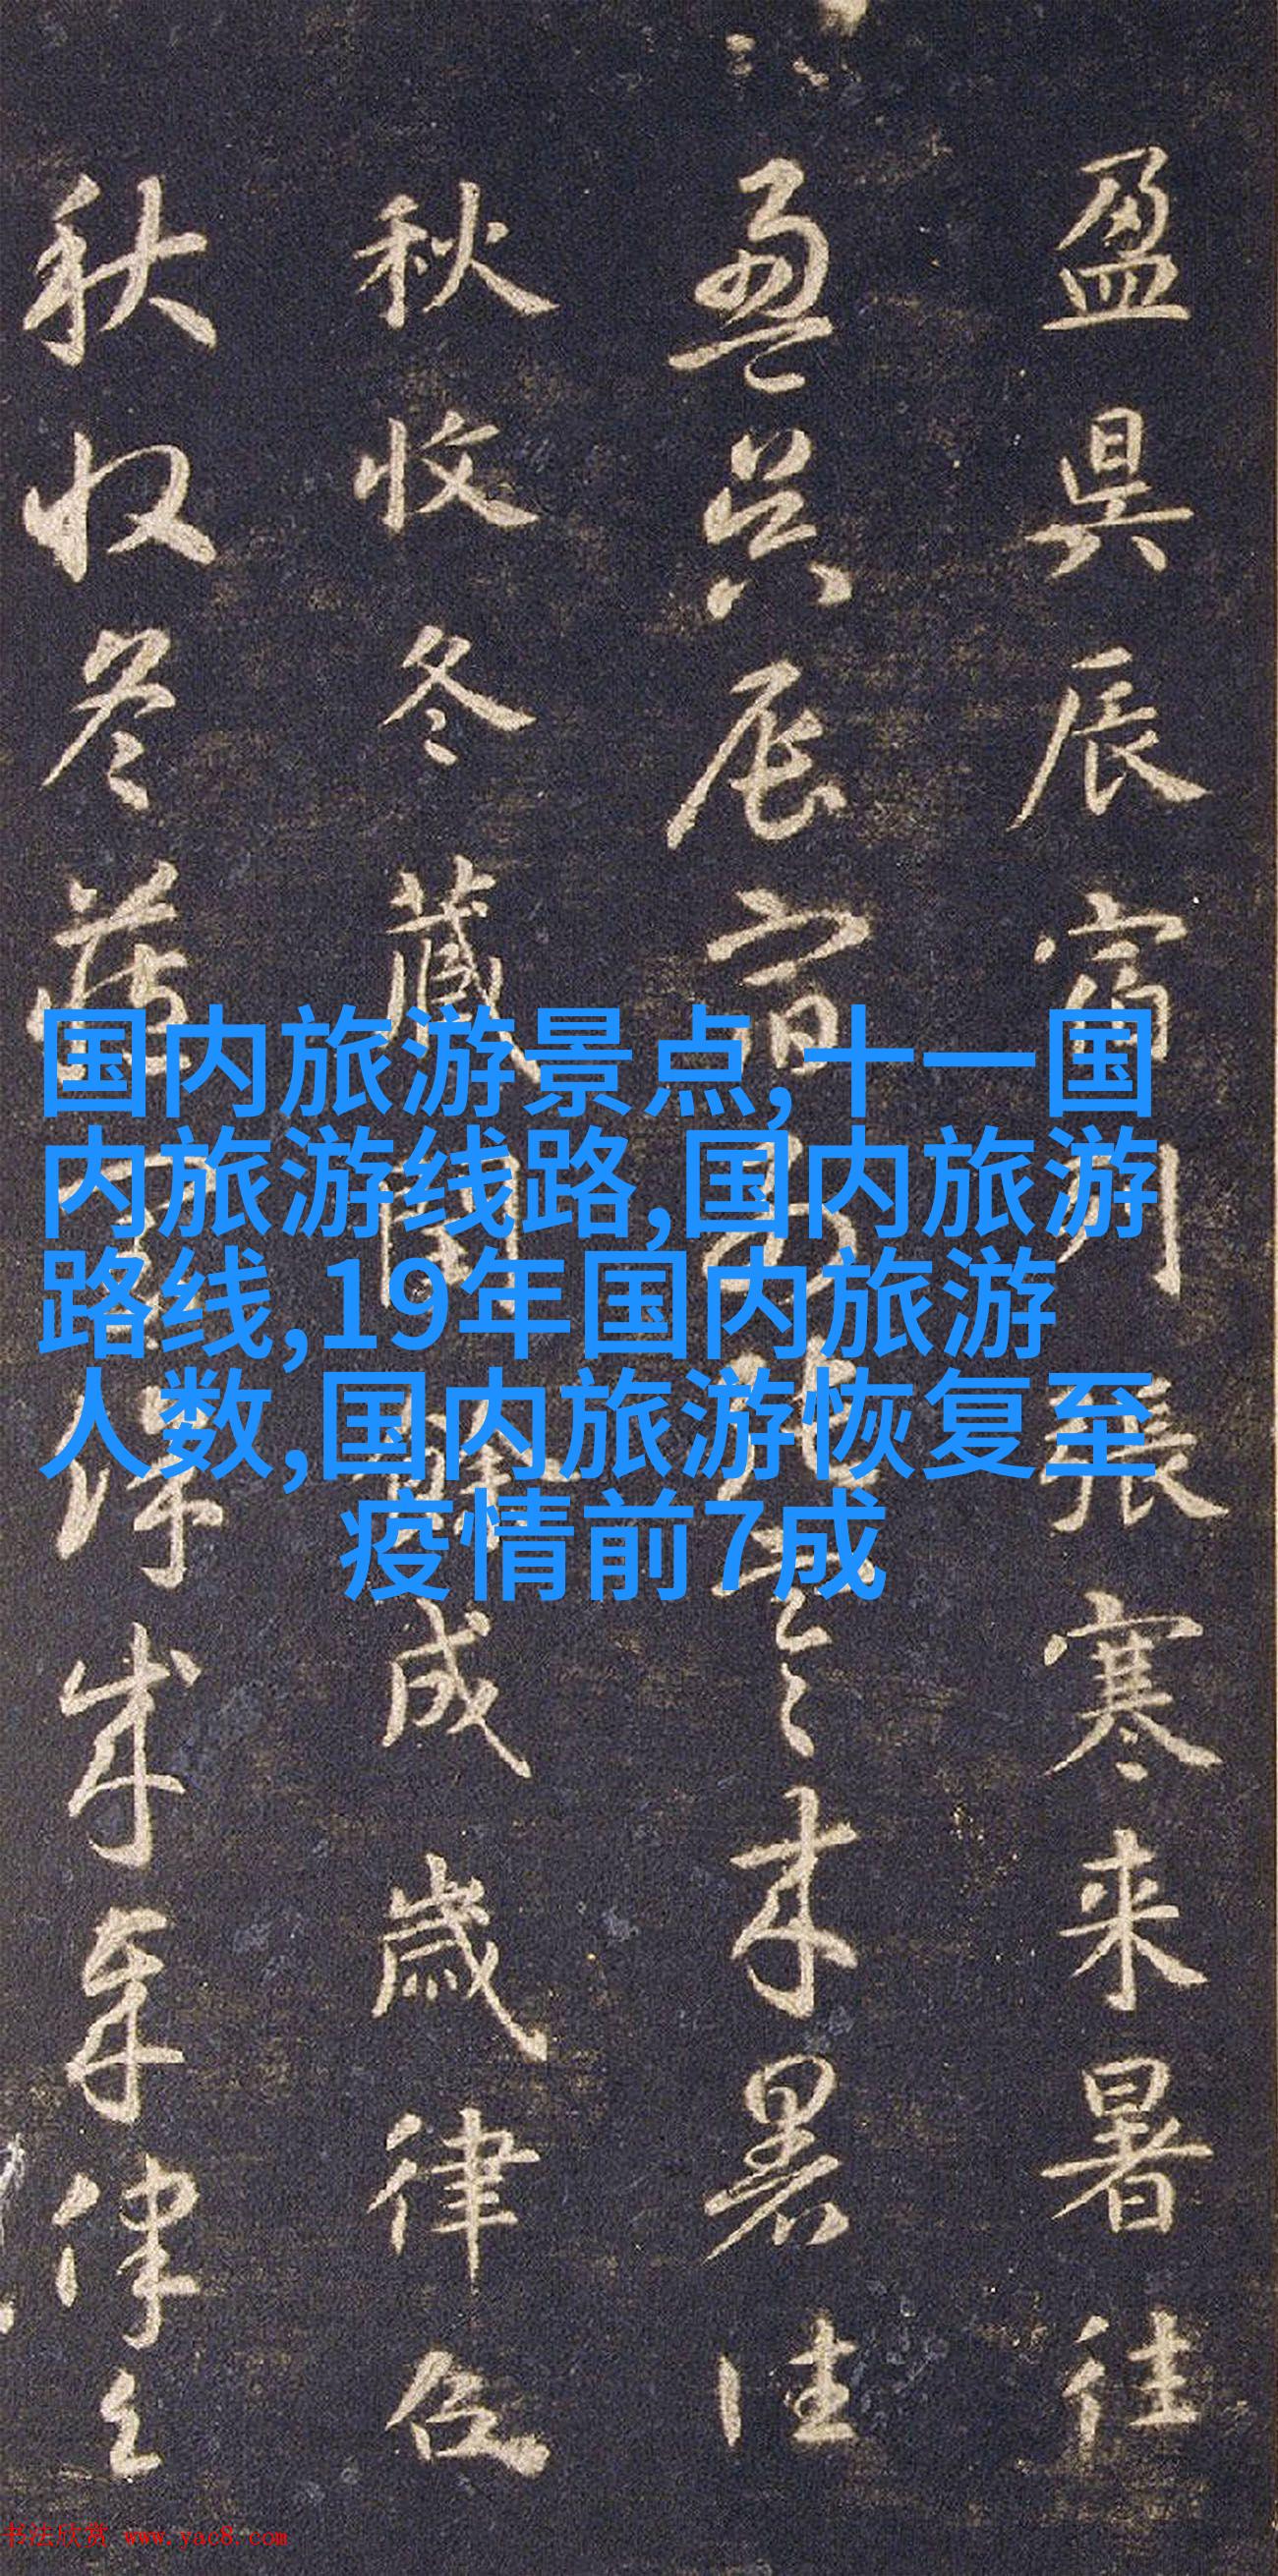 盈昃辰宿列張寒来暑往
盈昃辰宿列張寒来暑往
秋收冬藏閏餘成歲律召
秋收冬藏閏餘成歲律召
国内旅游景点,十一国
内旅游线路,国内旅游
路线,19年国内旅游
人数,国内旅游恢复至
疫情前7成
书法欣赏 www.yac8.com